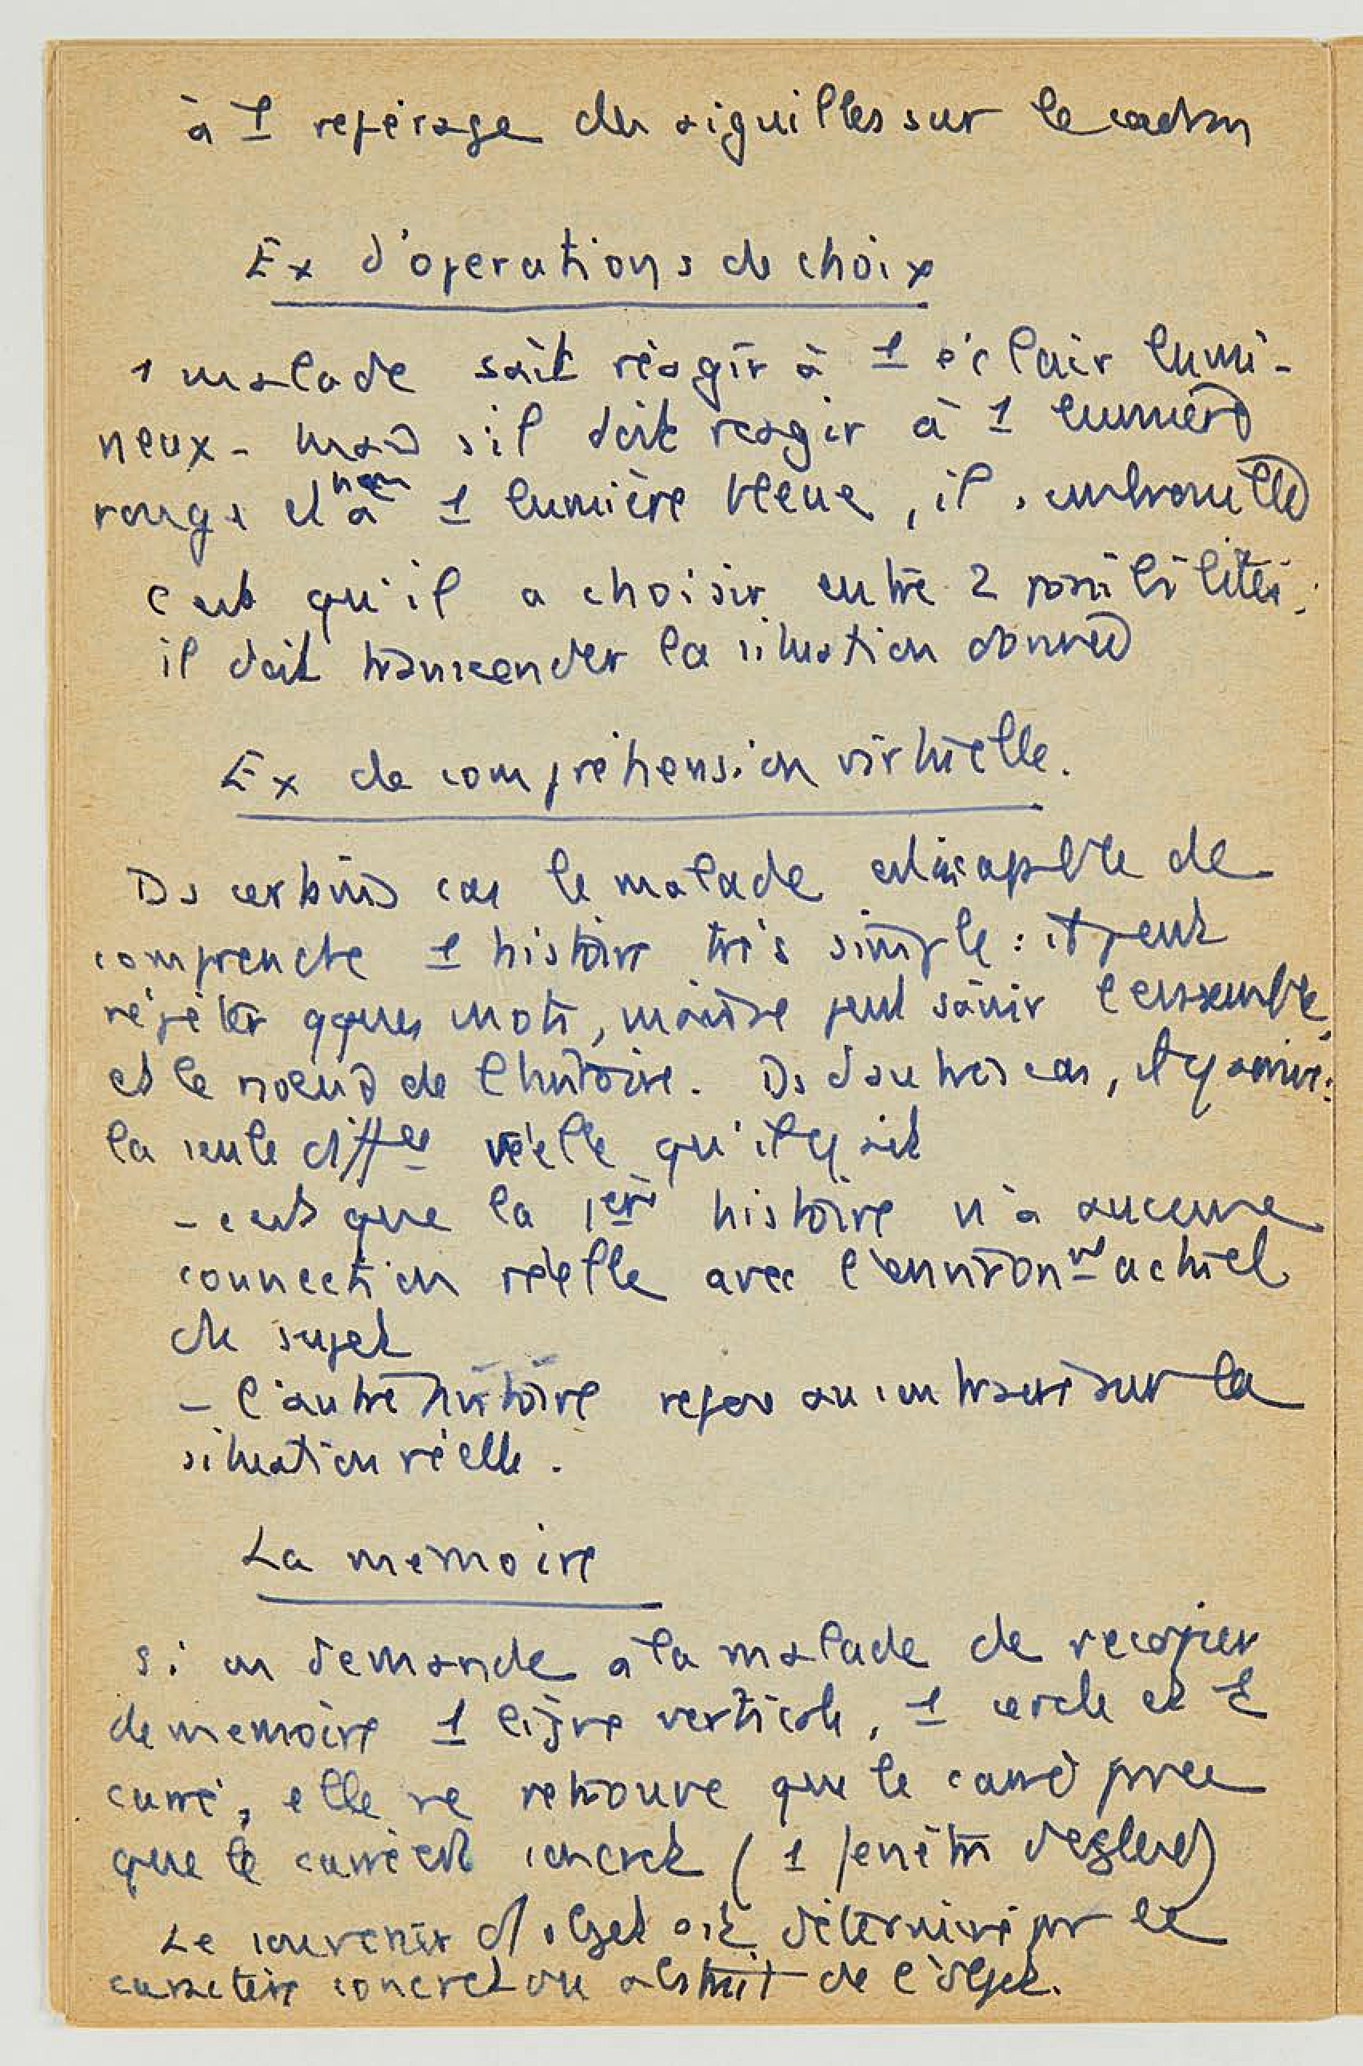 à 1 repérage des aiguilles sur le cadran
Ex d'operations de choix
1 malade sait réagir à 1 éclair lumi-
neux - mais s'il doit reagir à 1 lumière
rouge et non à 1 lumière bleue, il s'embrouille
c'est qu'il a choisir entre 2 possibilités :
il doit transcender la situation donnée
Ex de compréhension virtuelle.
Ds certains cas le malade est incapable de
comprendre 1 histoire très simple : il peut
répéter qques mots, mais ne peut saisir l'ensemble,
et le noeud de l'histoire. Ds d'autres cas, il y arrive :
la seule diffce réelle qu'il y ait
- c'est que la 1ère histoire n'a aucune
connection réelle avec l'environnt actuel
du sujet
- l'autre histoire repose au contraire sur la
situation réelle.
La memoire
si on demande à la malade de recopier
de memoire 1 ligne verticale, 1 cercle et 1
carré, elle ne retrouve que le carré parce
que le carré est concret (1 fenêtre)
Le souvenir d'1 objet est déterminé par le
caractère concret ou abstrait de l'objet.